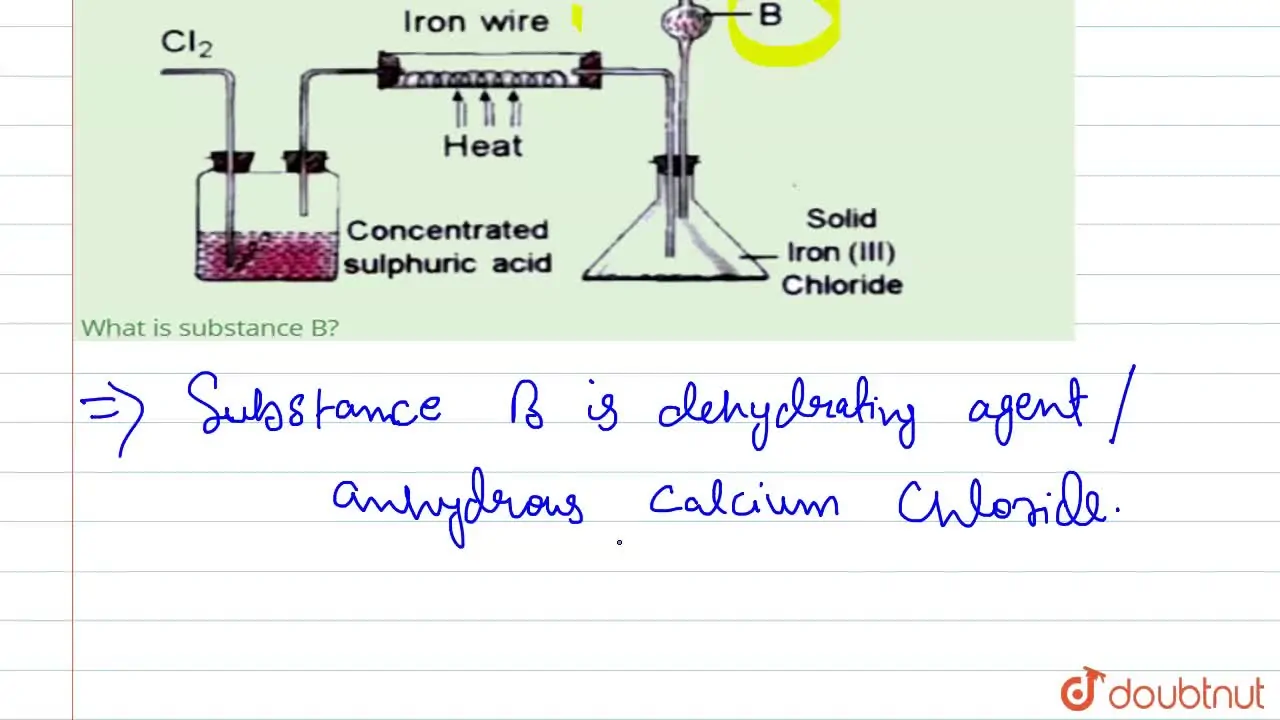 Iron wire
B
Cl₂
Heat
Concentrated
sulphuric acid
Solid
Iron (III)
Chloride
What is substance B?
=> Substance B is dehydrating agent /
anhydrous calcium Chloride.
doubtnut